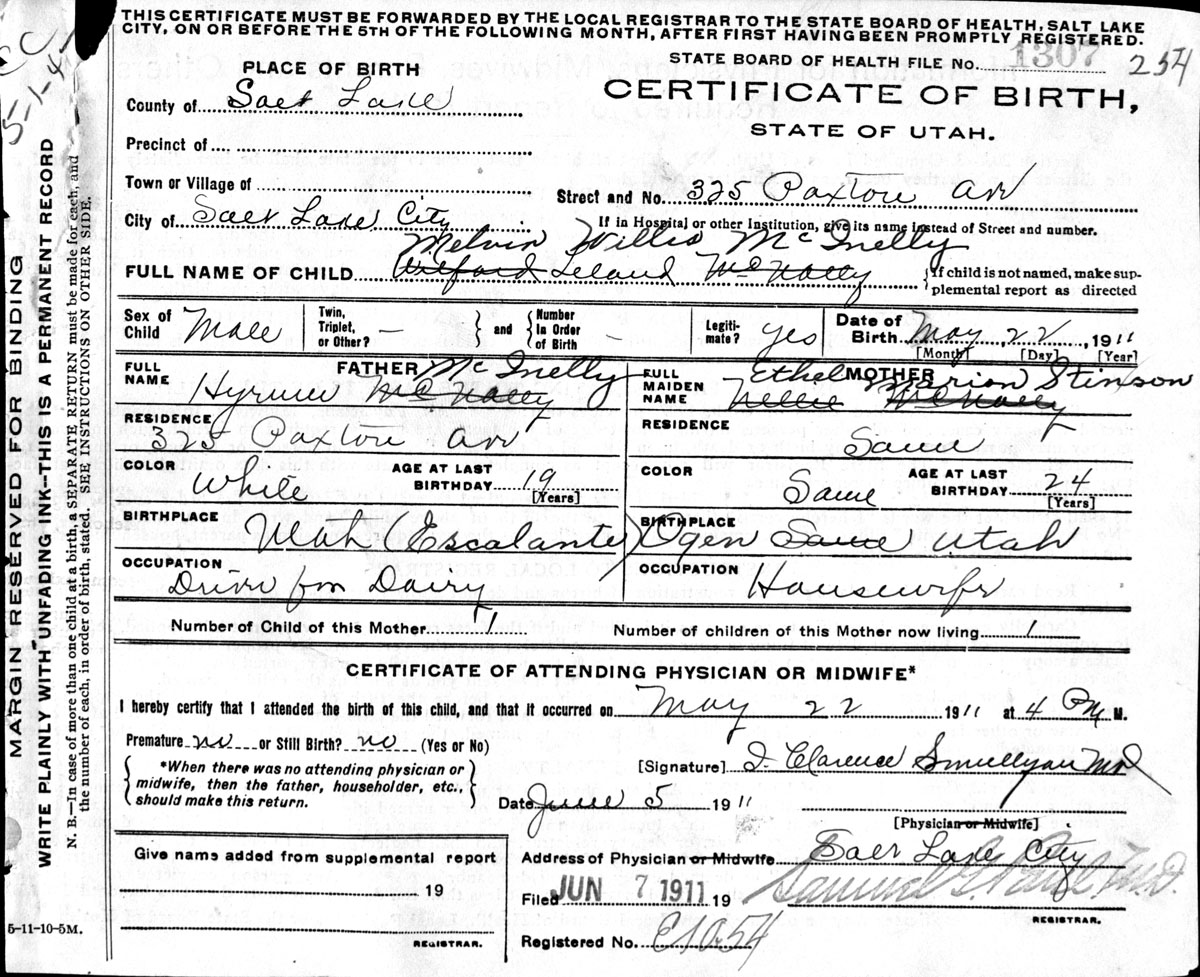 THIS CERTIFICATE MUST BE FORWARDED BY THE LOCAL REGISTRAR TO THE STATE BOARD OF HEALTH, SALT LAKE
CITY, ON OR BEFORE THE 5TH OF THE FOLLOWING MONTH, AFTER FIRST HAVING BEEN PROMPTLY REGISTERED.
STATE BOARD OF HEALTH FILE No. 1307 254
PLACE OF BIRTH
CERTIFICATE OF BIRTH,
STATE OF UTAH.
County of Salt Lake
Precinct of
Town or Village of
Street and No. 325 Paxton Av
City of Salt Lake City
If in Hospital or other Institution, give its name instead of Street and number.
Melvin Willis McInelly
FULL NAME OF CHILD Wilford Leland McNally
If child is not named, make sup-
plemental report as directed
Sex of Child Male
Twin, Triplet, or Other? —
and
Number In Order of Birth -
Legiti-mate? yes
Date of Birth May 22, 1911
[Month] [Day] [Year]
FATHER McInelly
FULL NAME Hyrum McNally
RESIDENCE 325 Paxton Av
COLOR White
AGE AT LAST BIRTHDAY 19
[Years]
BIRTHPLACE Utah (Escalante)
OCCUPATION Driver for Dairy
MOTHER
Ethel Marion Stinson
FULL MAIDEN NAME Nellie McNally
RESIDENCE Same
COLOR Same
AGE AT LAST BIRTHDAY 24
[Years]
BIRTHPLACE Ogen Same Utah
OCCUPATION Housewife
Number of Child of this Mother 1
Number of children of this Mother now living 1
CERTIFICATE OF ATTENDING PHYSICIAN OR MIDWIFE*
I hereby certify that I attended the birth of this child, and that it occurred on May 22 1911 at 4 PM M.
Premature no or Still Birth? no (Yes or No)
*When there was no attending physician or
midwife, then the father, householder, etc.,
should make this return.
[Signature] Clarence MD
Date June 5 1911
[Physician or Midwife]
Give name added from supplemental report
19
REGISTRAR.
Address of Physician or Midwife Salt Lake City
Filed JUN 7 1911 19
Samuel G. Paul M.D.
REGISTRAR.
Registered No. E1054
5-11-10-5M.
MARGIN RESERVED FOR BINDING
WRITE PLAINLY WITH UNFADING INK--THIS IS A PERMANENT RECORD
N. B.—In case of more than one child at a birth, a SEPARATE RETURN must be made for each, and
the number of each, in order of birth, stated. SEE INSTRUCTIONS ON OTHER SIDE.